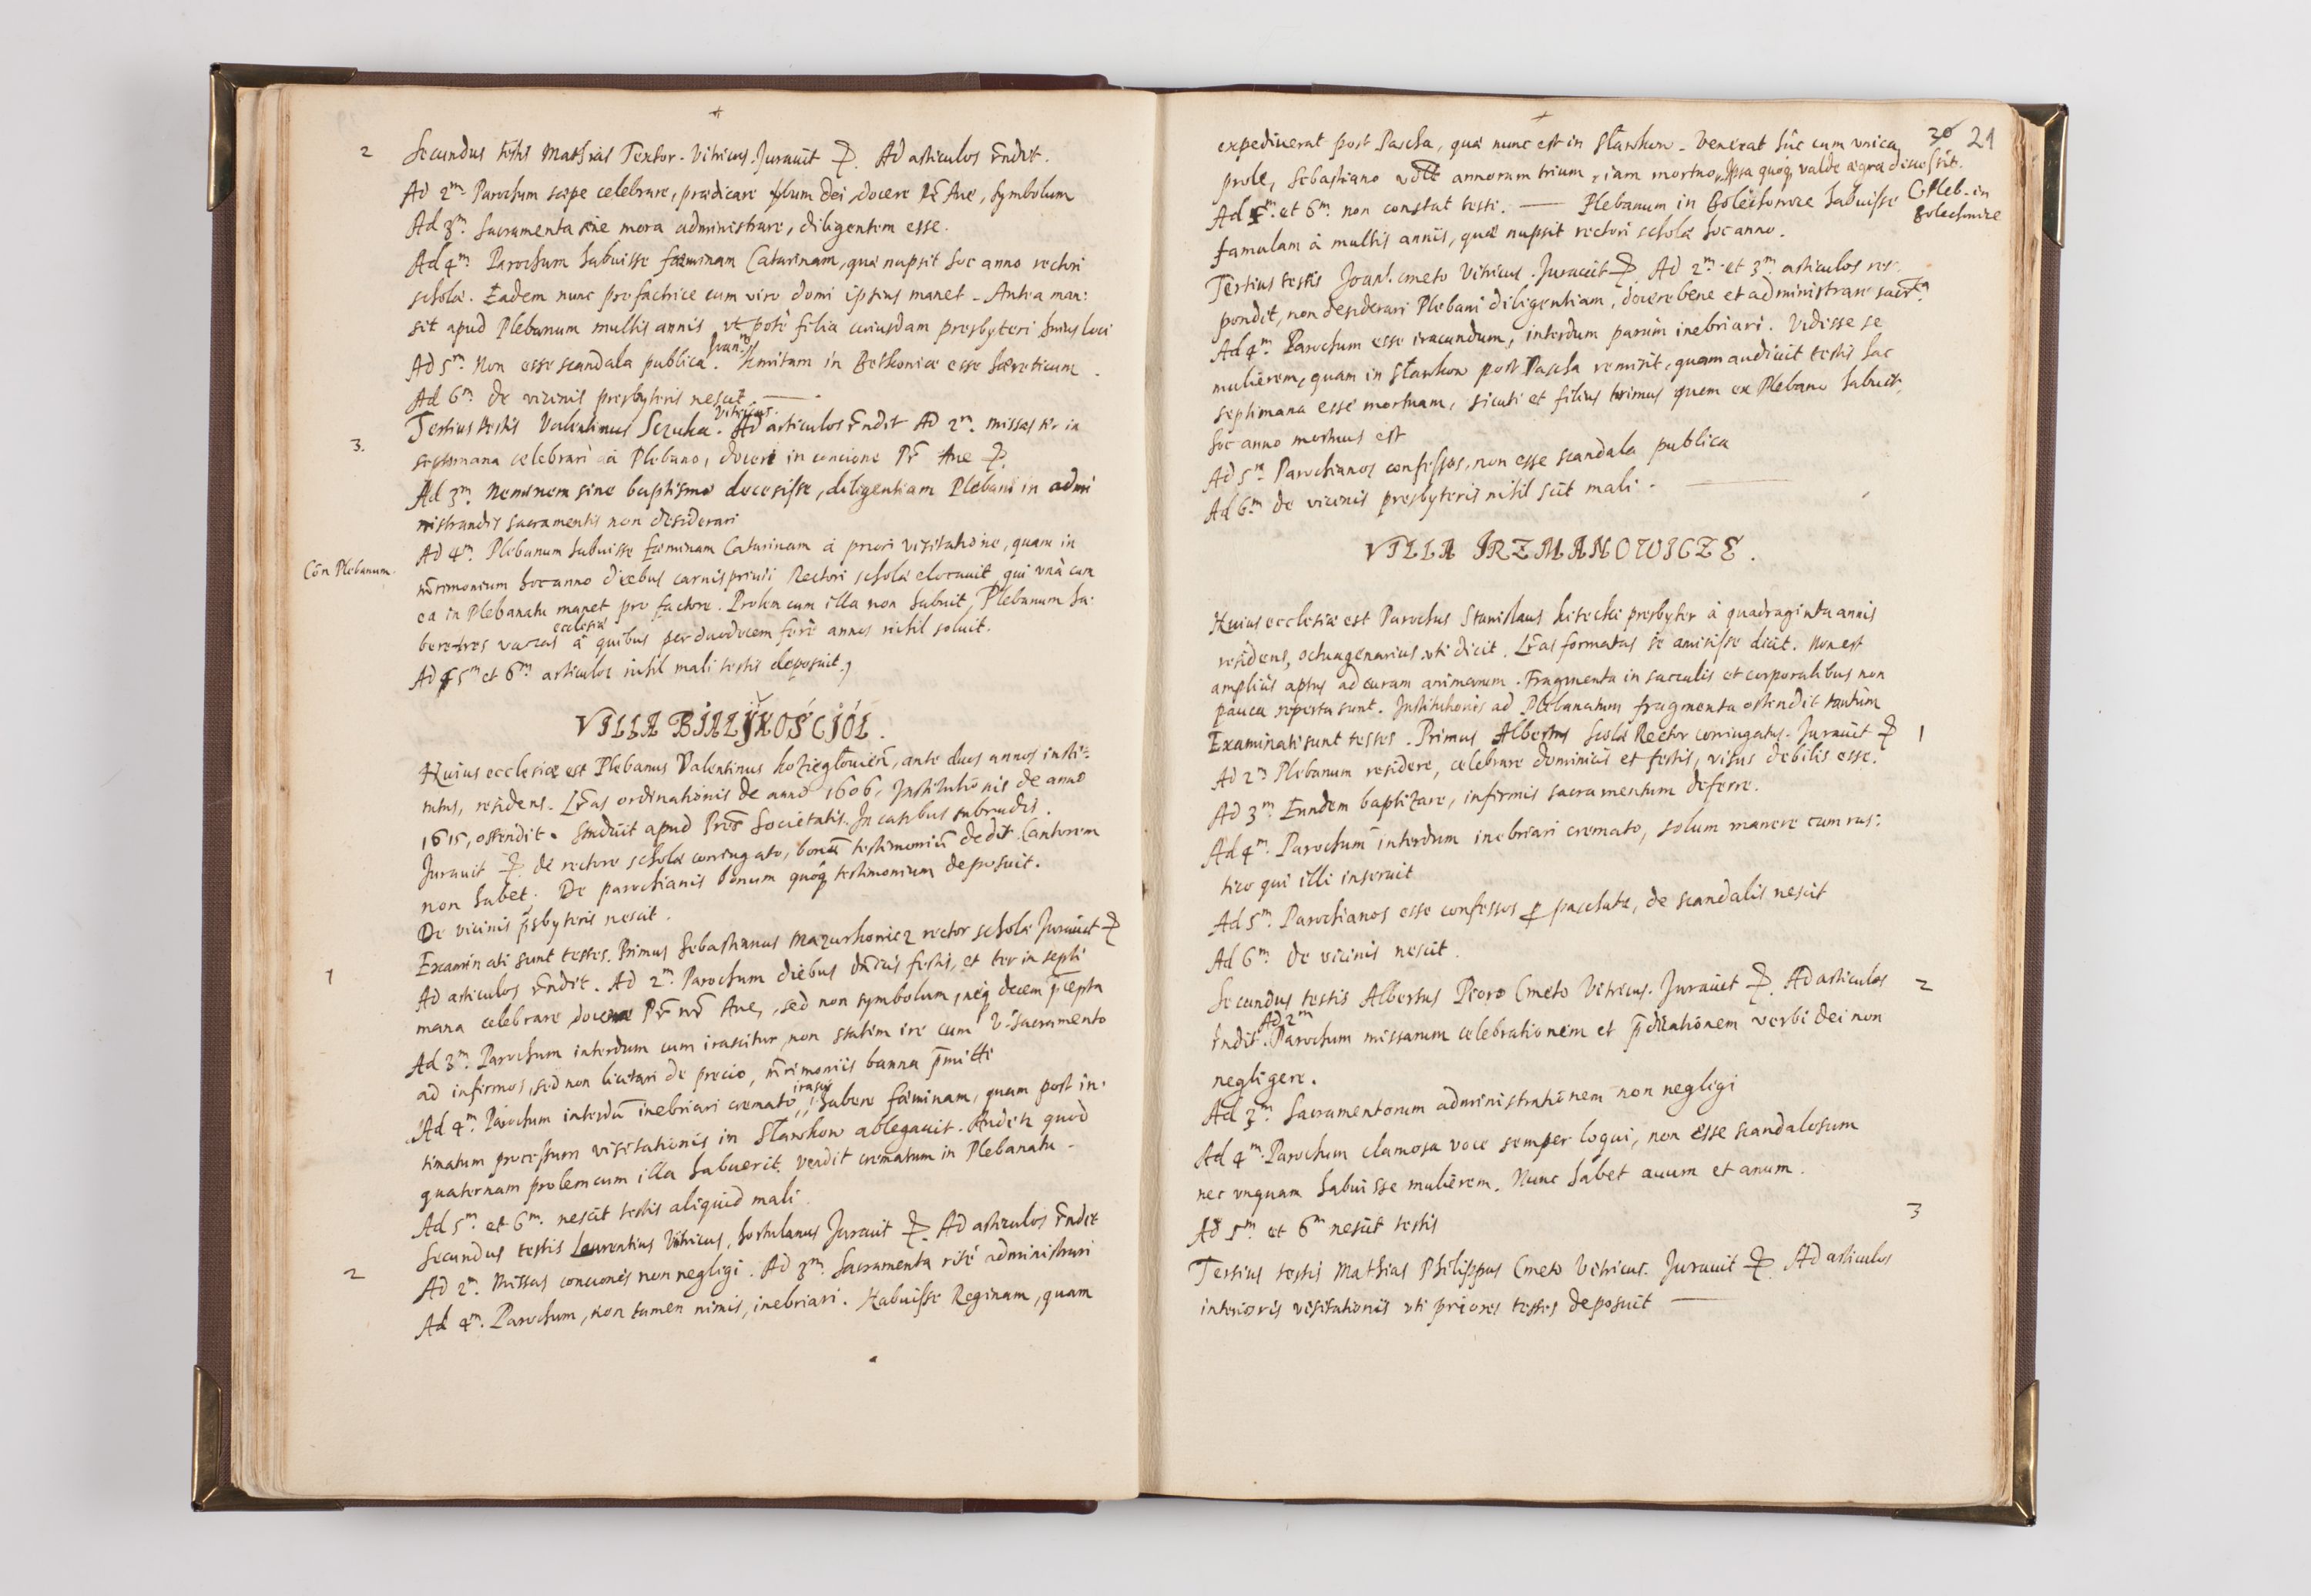 2 Secundus testis Mathias Textor. Vitricus. Jurauit. Ad articulos rñdit.
Ad 2m. Parochum sæpe celebrare, prædicare verbum dei, docere Pr̃ Aue, Symbolum
Ad 3m. Sacramenta sine mora administrare, diligentem esse.
Ad 4m. Parochum habuisse fœminam Catarinam, quæ nupsit hoc anno rectori
scholæ. Eadem nunc pro factrice cum viro domi ipsius manet. Antea man:
sit apud Plebanum multis annis vt pote filia cuiusdam presbyteri huius loci
Ad 5m Non esse scandala publica. in Betkonice esse hæreticum.
Ad 6m. de vicinis presbyteris nescit.
3. Tertius testis Valentinus Sczuka. Vitricus. Ad articulos rñdit Ad 2m. missas ter in
septimana celebrari à Plebano, doceri in concione Pr̃ Aue
Ad 3m. Neminem sine baptismo decesisse, diligentiam Plebani in admi
nistrandis sacramentis non desiderari
Con̄ Plebanum.
Ad 4m. Plebanum habuisse fœminam Catarinam à priori visitatione, quam in
mr̃imonium hoc anno diebus carnispriuii Rectori scholæ elocauit, qui vnà cum
ea in Plebanatu manet pro factore. Prolem cum illa non habuit, Plebanum ha:
bere tres vaccas ecclesiæ à quibus per duodecem ferè annos nihil soluit.
Ad 5m et 6m articulos nihil mali testis deposuit,
VILLA BIALYKOŚCIÓŁ.
Huius ecclesiæ est Plebanus Valentinus ante duos annos insti:
tutus, residens. Lr̃as ordinationis de anno 1606, Institutionis de anno
1615, ostendit. Studuit apud Pres Societatis. In casibus subrudis.
Jurauit. de rectore scholæ coniugato, bonũ testimoniũ dedit. Cantorem
non habet. De parochianis bonum quoq; testimonium deposuit.
De vicinis p̃sbyteris nescit.
1 Examinati sunt testes. Primus Sebastianus Mazurkonicz rector scholæ Jurauit
Ad articulos rñdit. Ad 2m. Parochum diebus dñicis festis, et ter in septi
mana celebrare docere Pr̃ nr̃ Aue, sed non symbolum, neq; decem p̃cepta
Ad 3m. Parochum interdum cum irascitur, non statim ire cum V. Sacramento
ad infirmos, sed non licitari de precio, mr̃imoniis banna p̃mitti
Ad 4m. Parochum interdũ inebriari cremato, irasci, habere fœminam, quam post in:
timatum processum visitationis in Slawkow ablegauit. Audiit quòd
quaternam prolem cum illa habuerit. Vendit crematum in Plebanatu.
Ad 5m. et 6m. nescit testis aliquid mali.
Secundus testis Laurentius Vitricus, hortulanus Jurauit. Ad articulos rñdit
2 Ad 2m. Missas conciones non negligi. Ad 3m. Sacramenta ritè administrari
Ad 4m. Parochum, non tamen nimis, inebriari. Habuisse Reginam, quam
30 21
expediuerat post Pascha, quæ nunc est in Slawkow. Venerat huc cum vnica
prole, Sebastiano annorum trium, iam mortuo, Ipsa quoq; valde ægra decessit.
Ad 5m. et 6m. non constat testi. Plebanum in Bolechowice habuisse
C. Pleb. in
Bolechowice
famulam à multis annis, quæ nupsit rectori scholæ hoc anno.
Tertius testis Joan̄. cmeto Vitricus. Jurauit. Ad 2m. et 3m. articulos res:
pondit, non desiderari Plebani diligentiam, docere bene et administrare sacr̃ta.
Ad 4m. Parochum esse iracundum, interdum parùm inebriari. Vidisse se
mulierem, quam in Slawkow post Pascha remisit, quam audiuit testis hac
septimana esse mortuam, sicuti et filius trimus quem ex Plebano habuit,
hoc anno mortuus est
Ad 5m Parochianos confessos, non esse scandala publica
Ad 6m de vicinis presbyteris nihil scit mali.
VILLA IRZMANOWICZE.
Huius ecclesiæ est Parochus Stanislaus presbyter à quadraginta annis
residens, octuagenarius vti dicit. Lr̃as formatas se amisisse dicit. Non est
ampliùs aptus ad curam animarum. Fragmenta in sacculis et corporalibus non
pauca reperta sunt. Institutionis ad Plebanatum fragmenta ostendit tantùm
Examinati sunt testes. Primus Albertus Scholæ Rector coniugatus. Jurauit 1
Ad 2m Plebanum residere, celebrare dominicis et festis, visus debilis esse.
Ad 3m. Eundem baptizare, infirmis sacramentum deferre.
Ad 4m. Parochum interdum inebriari cremato, solum manere cum rus:
tico qui illi inseruit
Ad 5m. Parochianos esse confessos p paschate, de scandalis nescit
Ad 6m. de vicinis nescit.
Secundus testis Albertus Pioro Cmeto Vitricus. Jurauit. Ad articulos 2
rñdit. Ad 2m Parochum missarum celebrationem et p̃dicationem verbi dei non
negligere.
Ad 3m. Sacramentorum administrationem non negligi
Ad 4m. Parochum clamosa voce semper loqui, non esse scandalosum
nec vnquam habuisse mulierem. Nunc habet auum et anum.
Ad 5m et 6m nescit testis
3
Tertius testis Mathias Philippus Cmeto Vitricus. Jurauit. Ad articulos
interioris visitationis vti priores testes deposuit